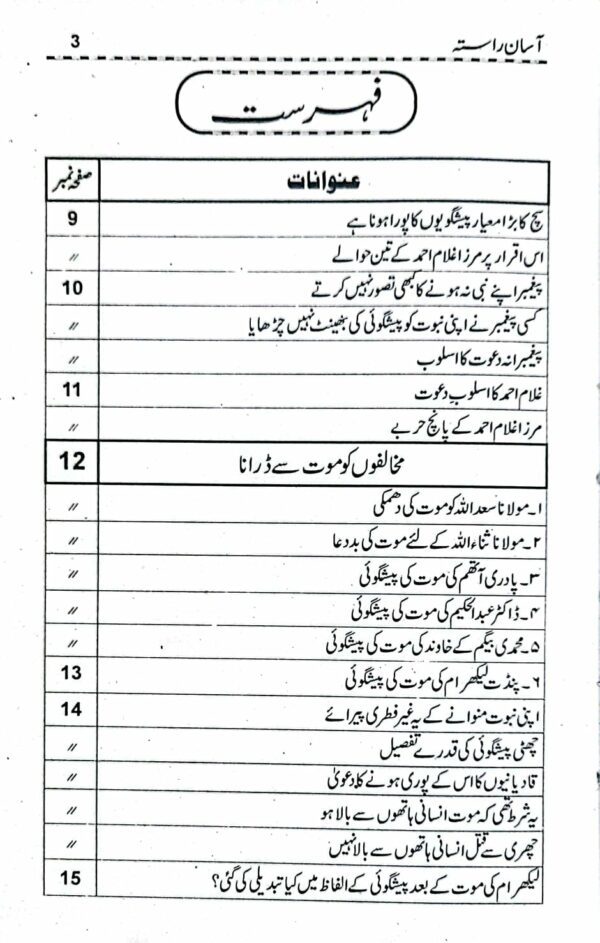 آسان راستہ 3
فہرست
عنوانات صفحہ نمبر
سچ کا بڑا معیار پیشگویوں کا پورا ہونا ہے 9
اس اقرار پر مرزا غلام احمد کے تین حوالے 〃
پیغمبر اپنے نبی نہ ہونے کا کبھی تصور نہیں کرتے 10
کسی پیغمبر نے اپنی نبوت کو پیشگوئی کی بھینٹ نہیں چڑھایا 〃
پیغمبرانہ دعوت کا اسلوب 〃
غلام احمد کا اسلوبِ دعوت 11
مرزا غلام احمد کے پانچ حربے 〃
مخالفوں کو موت سے ڈرانا 12
۱۔ مولانا سعد اللہ کو موت کی دھمکی 〃
۲۔ مولانا ثناء اللہ کے لئے موت کی بددعا 〃
۳۔ پادری آتھم کی موت کی پیشگوئی 〃
۴۔ ڈاکٹر عبدالحکیم کی موت کی پیشگوئی 〃
۵۔ محمدی بیگم کے خاوند کی موت کی پیشگوئی 〃
۶۔ پنڈت لیکھرام کی موت کی پیشگوئی 13
اپنی نبوت منوانے کے یہ غیر فطری پیرائے 14
چھٹی پیشگوئی کی قدرے تفصیل 〃
قادیانیوں کا اس کے پوری ہونے کا دعویٰ 〃
یہ شرط تھی کہ موت انسانی ہاتھوں سے بالا ہو 〃
چھری سے قتل انسانی ہاتھوں سے بالا نہیں 〃
لیکھرام کی موت کے بعد پیشگوئی کے الفاظ میں کیا تبدیلی کی گئی؟ 15